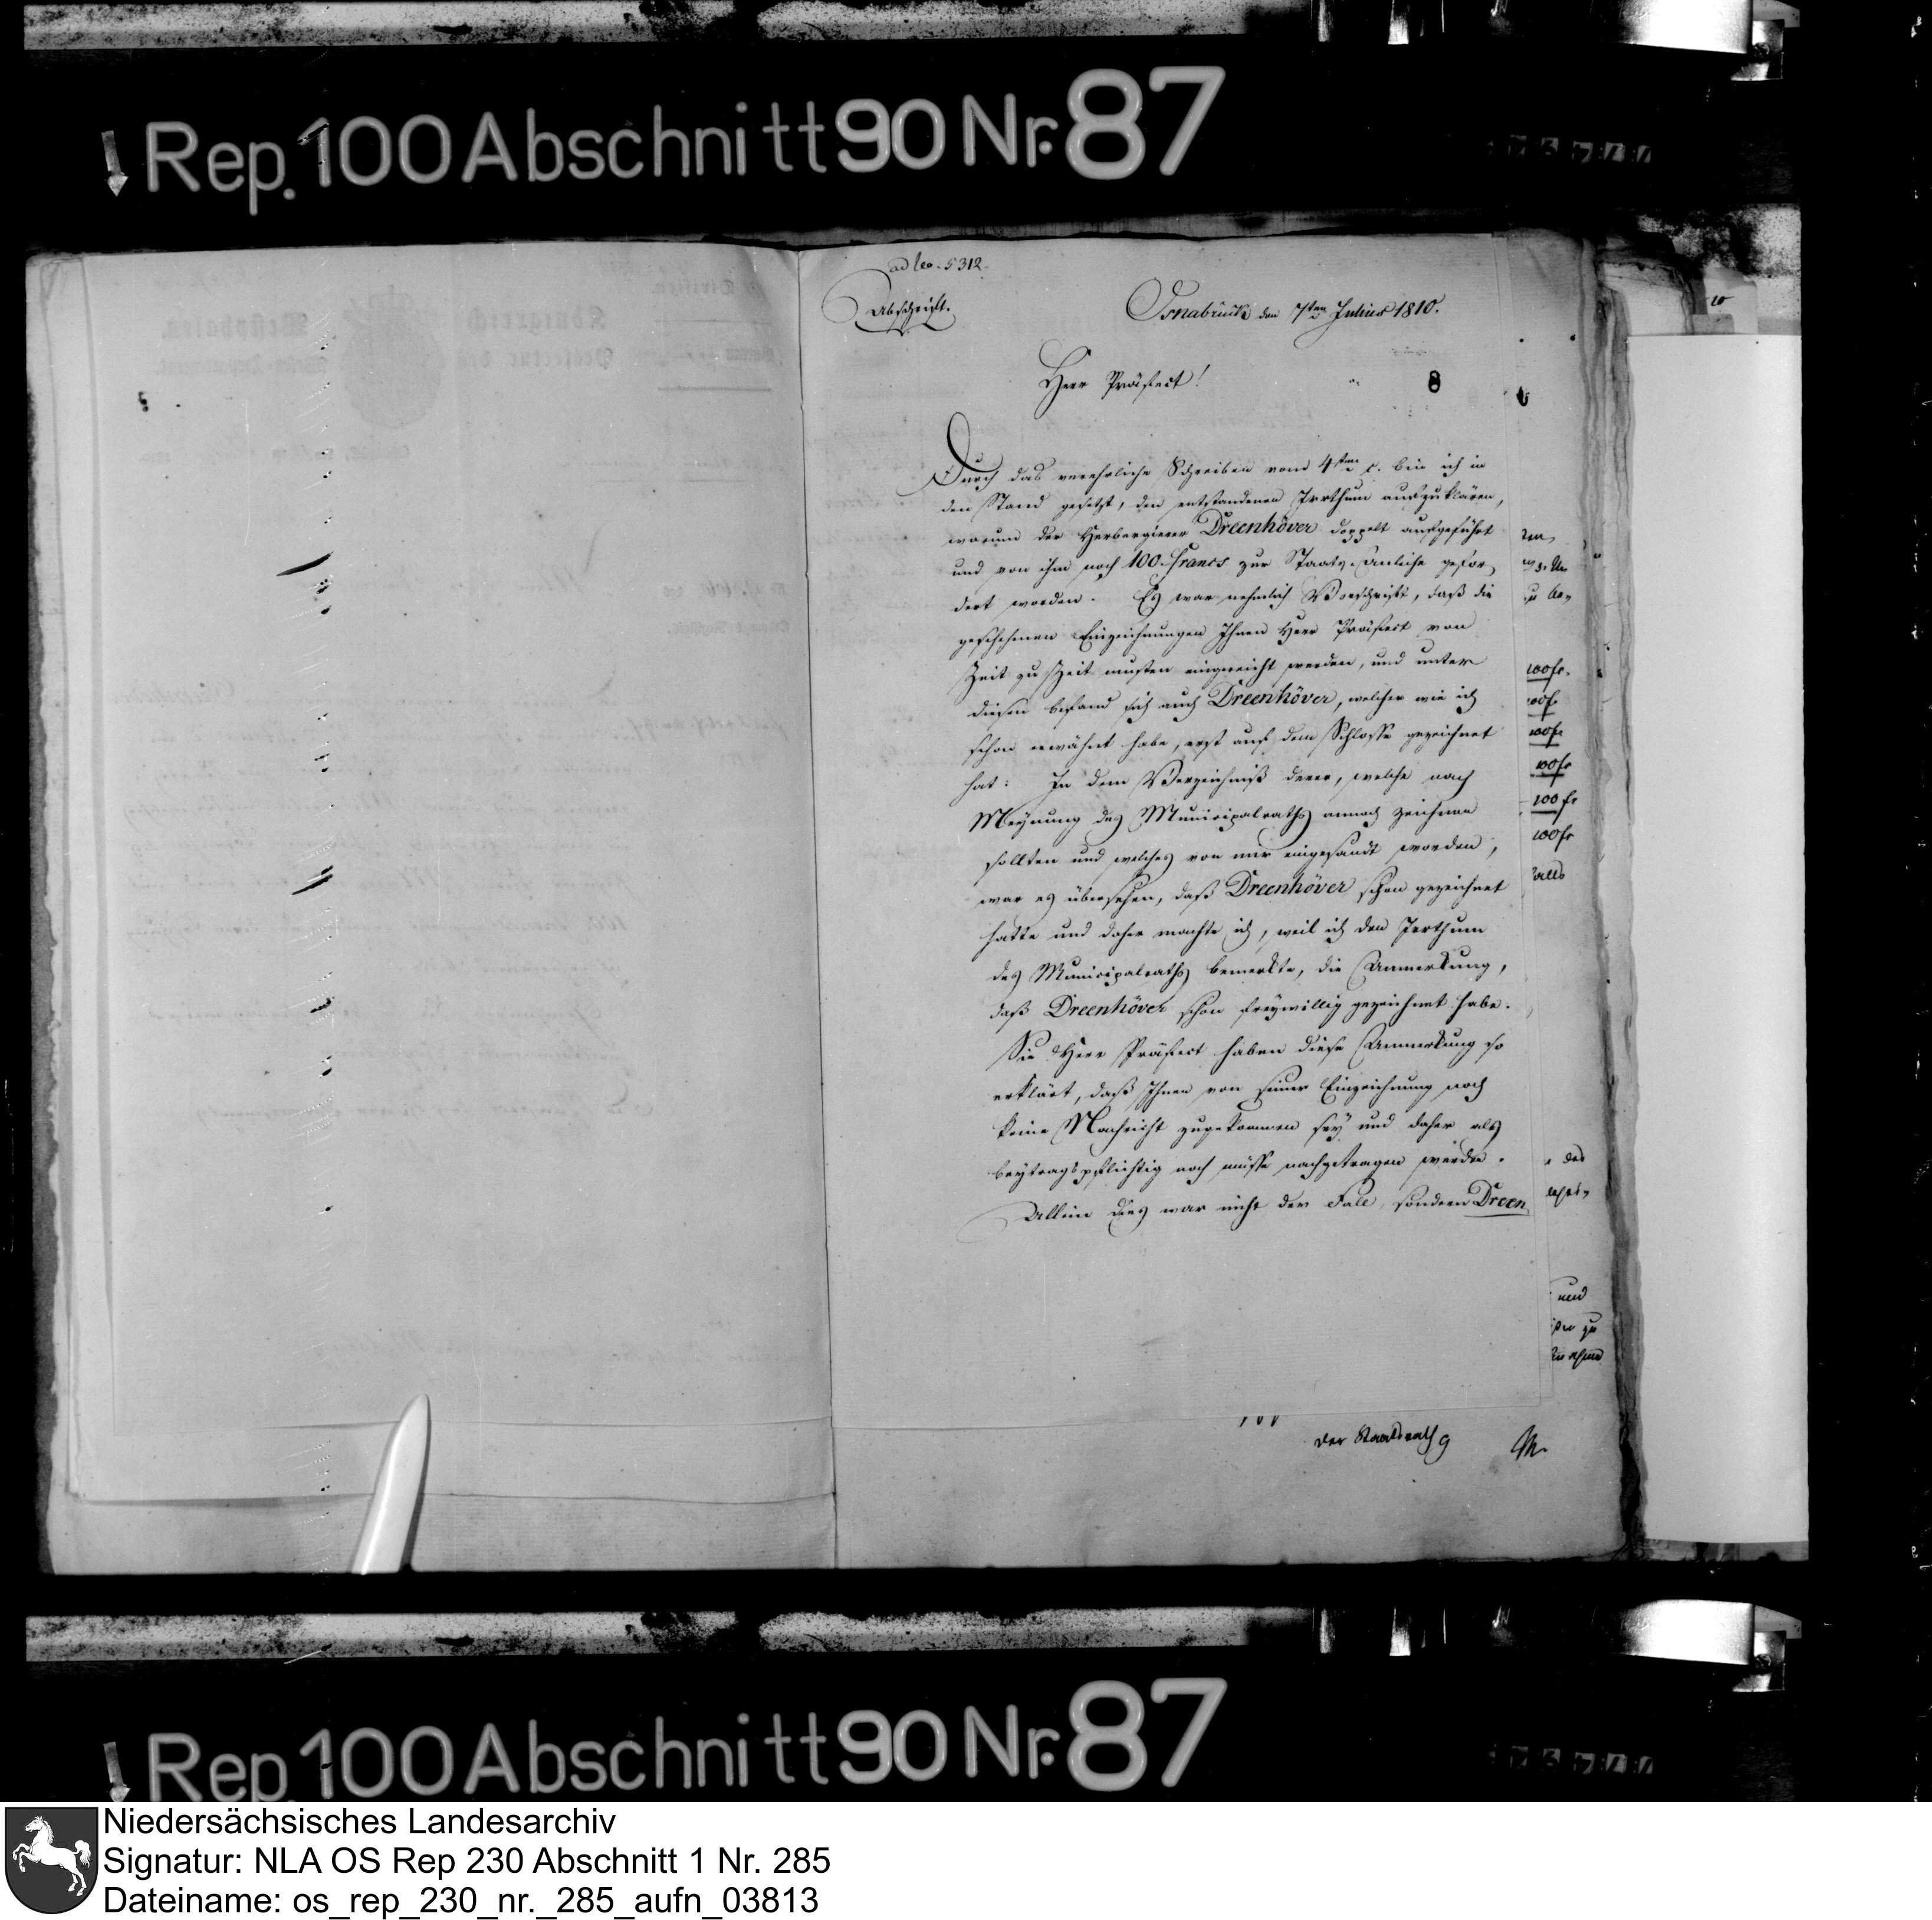 Rep. 100 Abschnitt 90 Nr. 87
ad No. 5312.
Abschrift.
Osnabrück den 7ten Julius 1810.
Herr Präfect!
8
Durch das verehrliche Schreiben vom 4ten c. bin ich in
den Stand gesetzt, den entstandenen Irrthum aufzuklären,
warum der Herbergierer Dreenhöver doppelt aufgeführt
und von ihm noch 100 Francs zur Staats-Anleihe gefor
dert worden. Es war nehmlich Vorschrift, daß die
geschehenen Einzeichnungen Ihnen Herr Präfect von
Zeit zu Zeit musten eingereicht werden, und unter
diesen befand sich auch Dreenhöver, welcher wie ich
schon erwähnt habe, erst auf dem Schlosse gezeichnet
hat: In dem Verzeichniß derer, welche nach
Meynung des Municipalraths annoch zeichnen
sollten und welches von mir eingesandt worden,
war es übersehen, daß Dreenhöver schon gezeichnet
hatte und daher machte ich, weil ich den Irrthum
des Municipalraths bemerkte, die Anmerkung,
daß Dreenhöver schon freywillig gezeichnet habe.
Sie Herr Präfect haben diese Anmerkung so
erklärt, daß Ihnen von seiner Einzeichnung noch
keine Nachricht zugekommen sey und daher als
beytragspflichtig noch müsse nachgetragen werden.
Allein dies war nicht der Fall, sondern Dreen
100 fr.
100 fr
100 fr
100 fr
100 fr
100 fr
der
und
zu
der Staatsrath
Rep. 100 Abschnitt 90 Nr. 87
Niedersächsisches Landesarchiv
Signatur: NLA OS Rep 230 Abschnitt 1 Nr. 285
Dateiname: os_rep_230_nr._285_aufn_03813